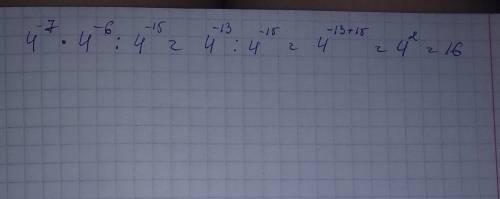 4⁻⁷ · 4⁻⁶ : 4⁻¹⁵ = 4⁻¹³ : 4⁻¹⁵ = 4⁻¹³⁺¹⁵ = 4² = 16